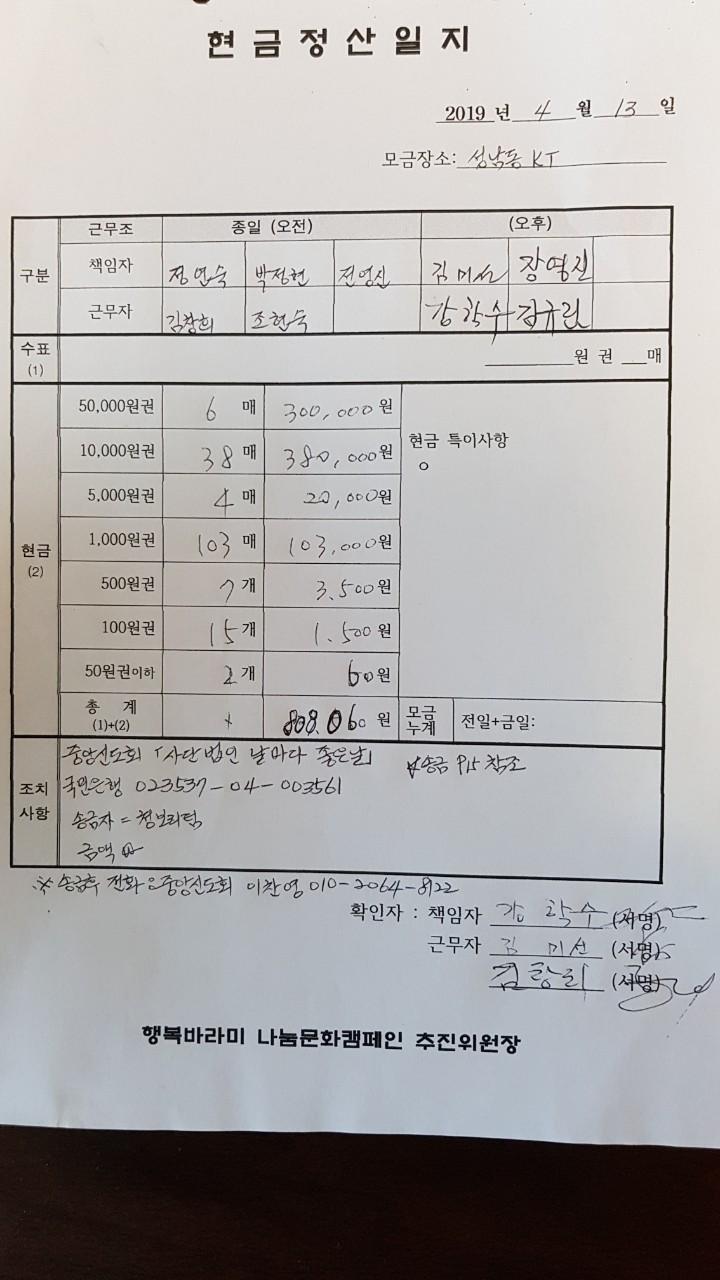 현금정산일지
2019 년 4 월 13 일
모금장소: 성남동 KT
구분 근무조 종일 (오전) (오후)
책임자 정연숙 박정현 전영신 김미선 장영신
근무자 김창희 조현숙 강학수 김규린
수표 (1) 원 권 매
현금 (2)
50,000원권 6 매 300,000원
10,000원권 38 매 380,000원
5,000원권 4 매 20,000원
1,000원권 103 매 103,000원
500원권 7 개 3.500원
100원권 15 개 1.500원
50원권이하 2 개 60원
현금 특이사항
총 계 (1)+(2) 808.060 원 모금누계 전일+금일:
조치사항
중앙신도회 「사단법인 날마다 좋은날」 송금 P15 참조
국민은행 023537-04-003561
송금자 = 청보리팀
금액
※ 송금후 전화 중앙신도회 이찬영 010-2064-8122
확인자 : 책임자 강학수 (서명)
근무자 김미선 (서명)
김창희 (서명)
행복바라미 나눔문화캠페인 추진위원장